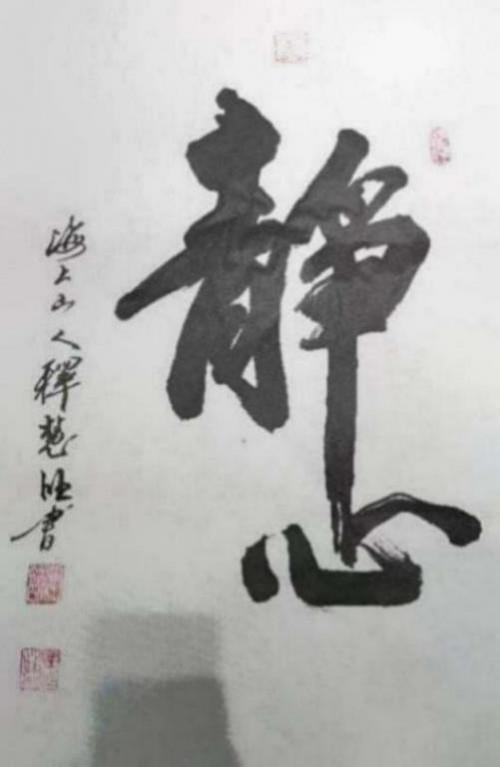 静心
海上山人釋慧旺書